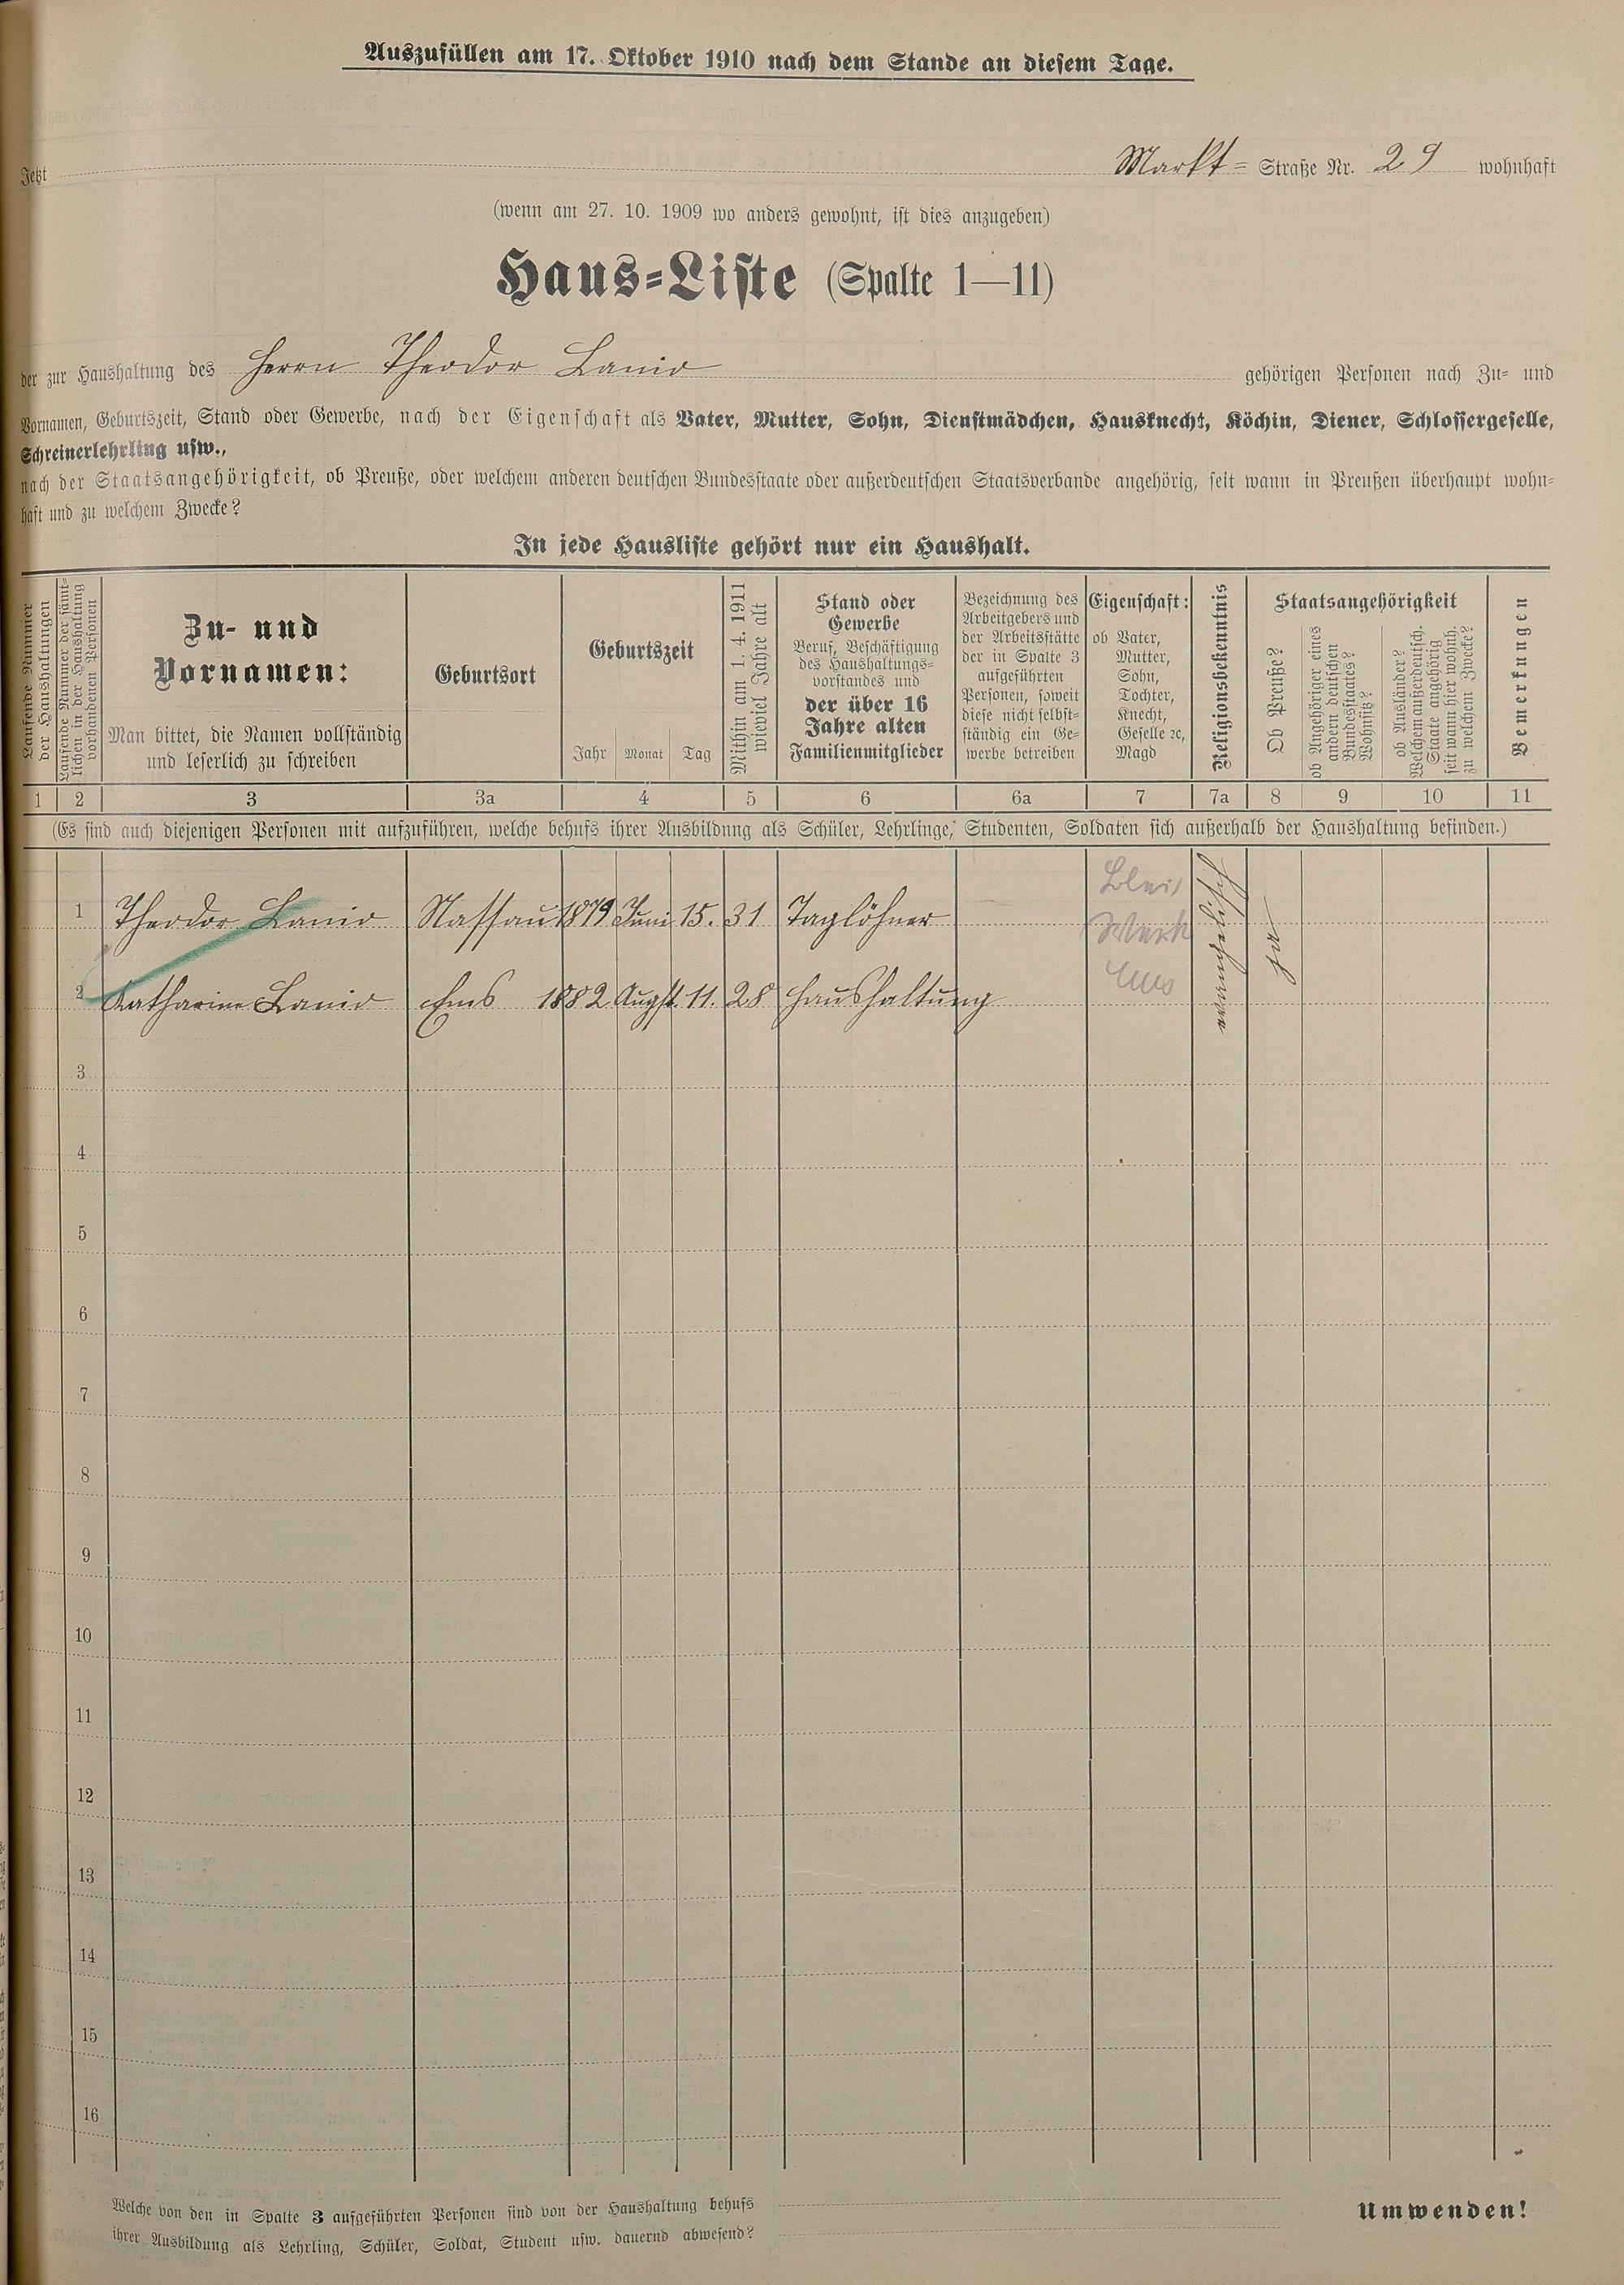 Auszufüllen am 17. Oktober 1910 nach dem Stande an diesem Tage.
Jetzt Markt= Straße Nr. 29 wohnhaft
(wenn am 27. 10. 1909 wo anders gewohnt, ist dies anzugeben)
Haus=Liste (Spalte 1—11)
der zur Haushaltung des Herrn Theodor Lanio gehörigen Personen nach Zu= und
Vornamen, Geburtszeit, Stand oder Gewerbe, nach der Eigenschaft als Vater, Mutter, Sohn, Dienstmädchen, Hausknecht, Köchin, Diener, Schlossergeselle,
Schreinerlehrling usw.,
nach der Staatsangehörigkeit, ob Preuße, oder welchem anderen deutschen Bundesstaate oder außerdeutschen Staatsverbande angehörig, seit wann in Preußen überhaupt wohn=
haft und zu welchem Zwecke?
In jede Hausliste gehört nur ein Haushalt.
Laufende Nummer
der Haushaltungen
Laufende Nummer der sämt=
lichen in der Haushaltung
vorhandenen Personen
Zu- und
Vornamen:
Man bittet, die Namen vollständig
und leserlich zu schreiben
Geburtsort
Geburtszeit
Jahr Monat Tag
Mithin am 1. 4. 1911
wieviel Jahre alt
Stand oder
Gewerbe
Beruf, Beschäftigung
des Haushaltungs=
vorstandes und
der über 16
Jahre alten
Familienmitglieder
Bezeichnung des
Arbeitgebers und
der Arbeitsstätte
der in Spalte 3
aufgeführten
Personen, soweit
diese nicht selbst=
ständig ein Ge=
werbe betreiben
Eigenschaft:
ob Vater,
Mutter,
Sohn,
Tochter,
Knecht,
Geselle ꝛc,
Magd
Religionsbekenntnis
Staatsangehörigkeit
Ob Preuße?
ob Angehöriger eines
andern deutschen
Bundesstaates?
Wohnsitz?
ob Ausländer?
Welchem außerdeutsch.
Staate angehörig
seit wann hier wohnh.
zu welchem Zwecke?
Bemerkungen
1 2 3 3a 4 5 6 6a 7 7a 8 9 10 11
(Es sind auch diejenigen Personen mit aufzuführen, welche behufs ihrer Ausbildung als Schüler, Lehrlinge, Studenten, Soldaten sich außerhalb der Haushaltung befinden.)
1 Theodor Lanio Nassau 1879 Juni 15. 31 Taglöhner
Blei
Werk
Ems
evangelisch
ja
2 Katharine Lanio Ems 1882 Augst. 11. 28 Haushaltung
3
4
5
6
7
8
9
10
11
12
13
14
15
16
Welche von den in Spalte 3 aufgeführten Personen sind von der Haushaltung behufs
ihrer Ausbildung als Lehrling, Schüler, Soldat, Student usw. dauernd abwesend?
Umwenden!